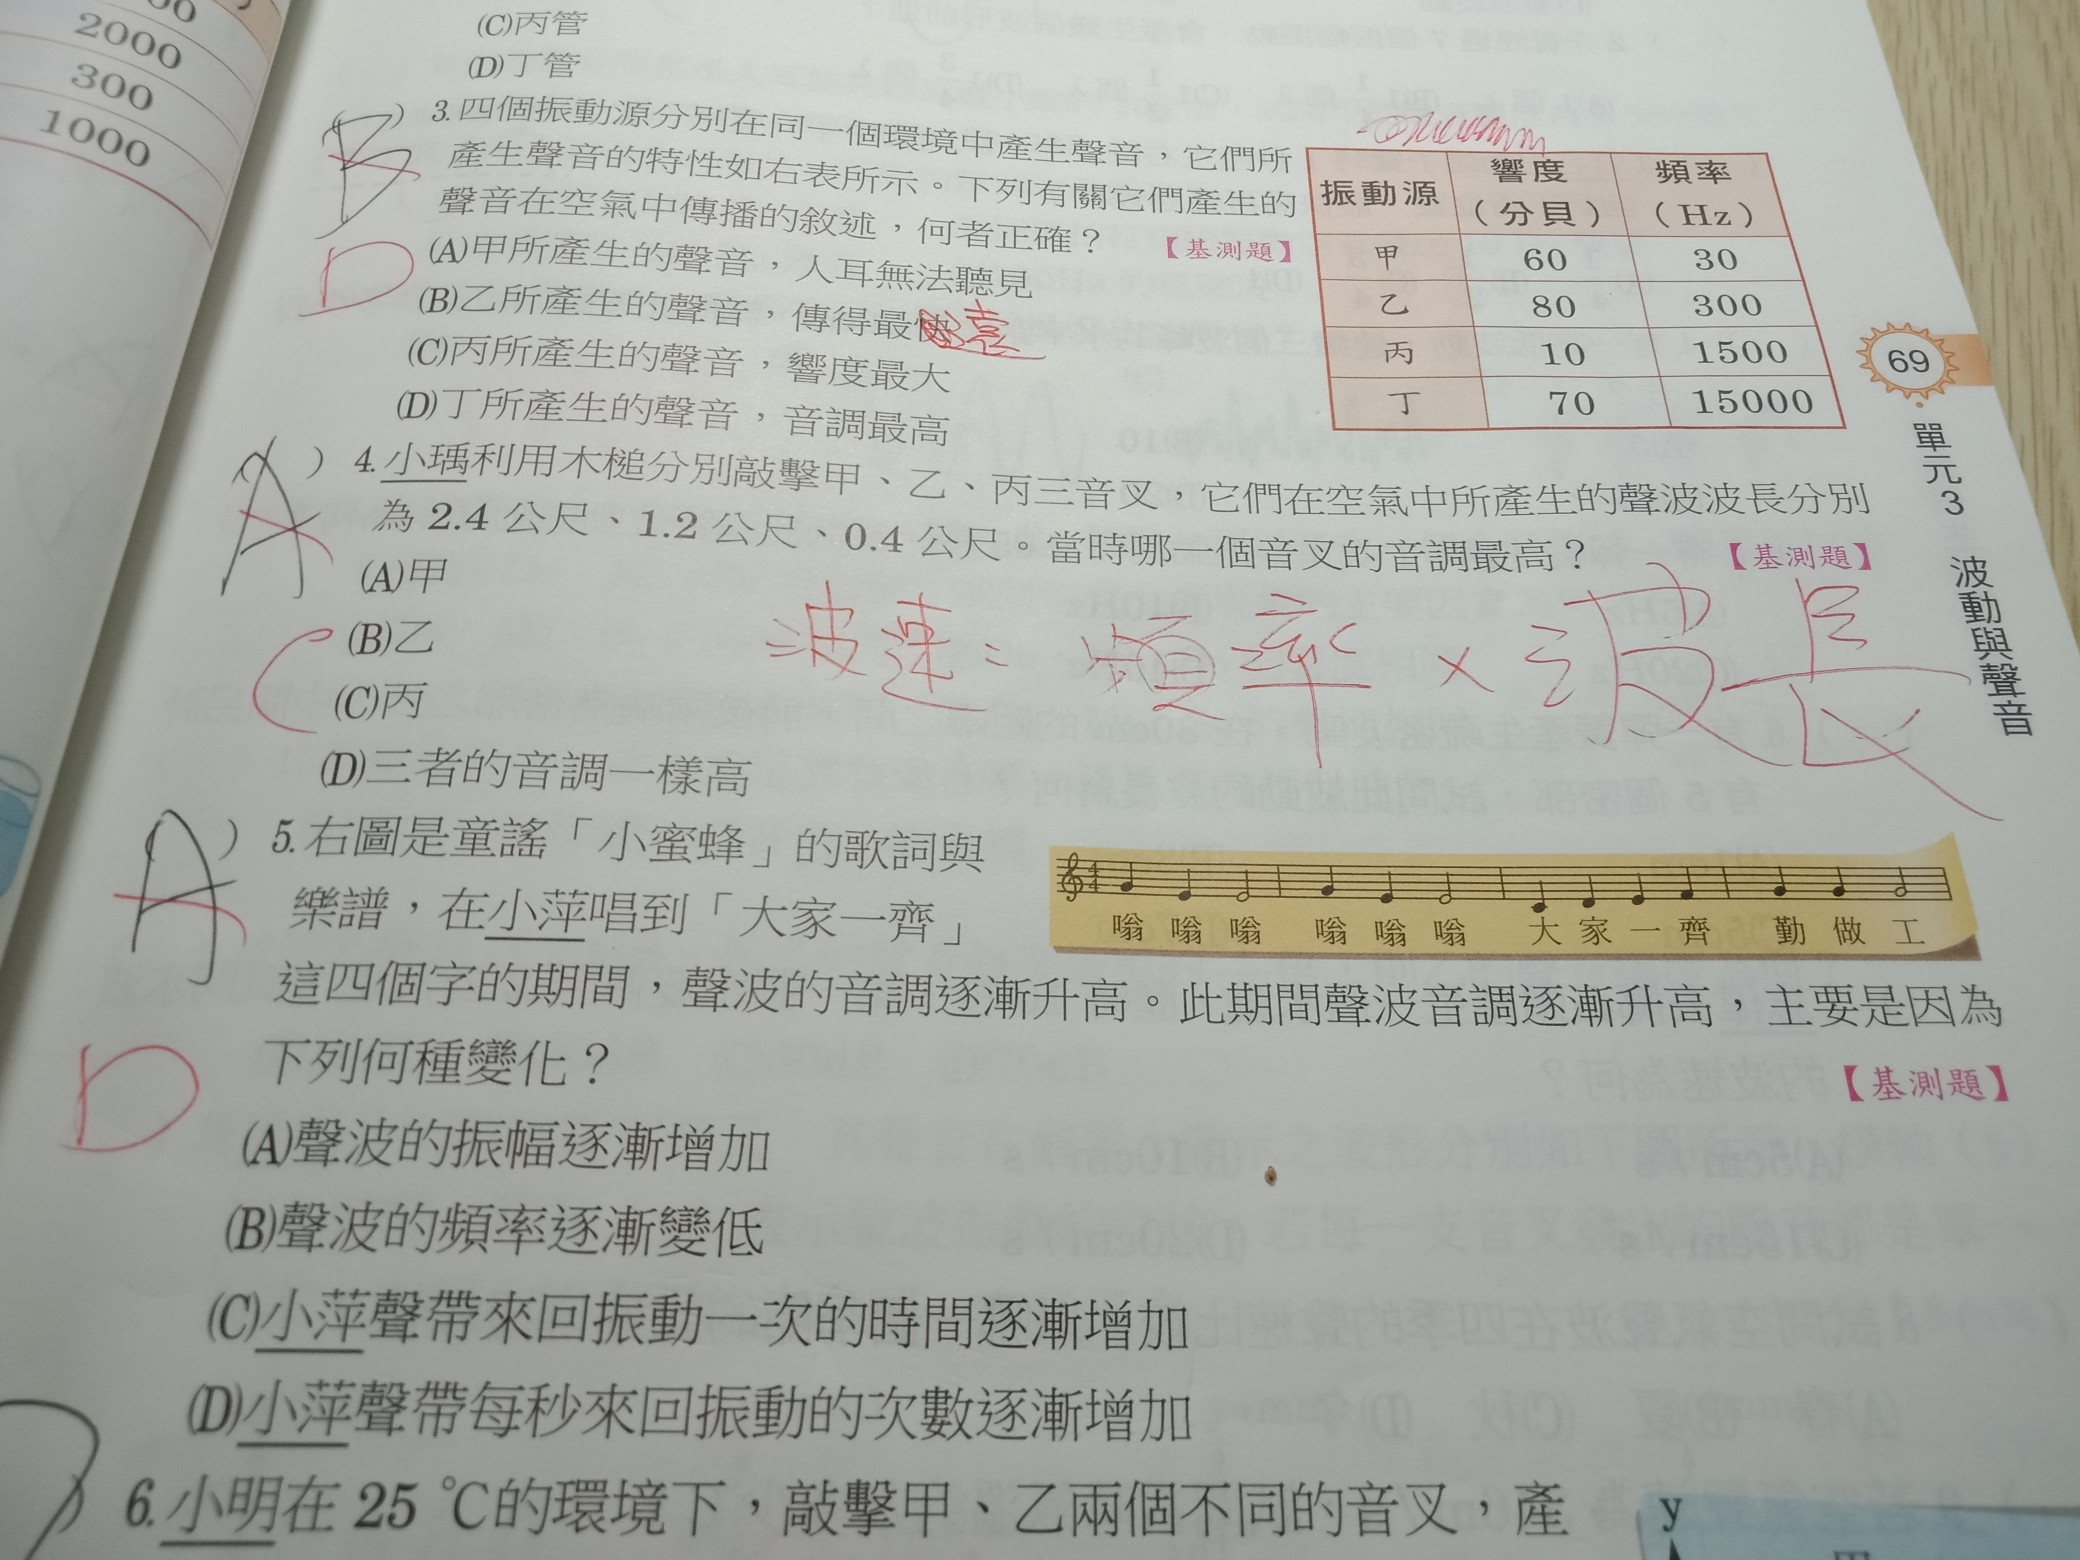 00
2000
300
1000
(C)丙管
(D)丁管
B
) 3.四個振動源分別在同一個環境中產生聲音，它們所
產生聲音的特性如右表所示。下列有關它們產生的
聲音在空氣中傳播的敘述，何者正確？ 【基測題】
D
(A)甲所產生的聲音，人耳無法聽見
(B)乙所產生的聲音，傳得最快遠
(C)丙所產生的聲音，響度最大
(D)丁所產生的聲音，音調最高
振動源 響度（分貝） 頻率（Hz）
甲 60 30
乙 80 300
丙 10 1500
丁 70 15000
69
單元3 波動與聲音
A
) 4.小瑀利用木槌分別敲擊甲、乙、丙三音叉，它們在空氣中所產生的聲波波長分別
為 2.4 公尺、1.2 公尺、0.4 公尺。當時哪一個音叉的音調最高？ 【基測題】
(A)甲
(B)乙
C
(C)丙
(D)三者的音調一樣高
波速=頻率×波長
A
) 5.右圖是童謠「小蜜蜂」的歌詞與
樂譜，在小萍唱到「大家一齊」
這四個字的期間，聲波的音調逐漸升高。此期間聲波音調逐漸升高，主要是因為
下列何種變化？ 【基測題】
4
4
嗡 嗡 嗡 嗡 嗡 嗡 大 家 一 齊 勤 做 工
D
(A)聲波的振幅逐漸增加
(B)聲波的頻率逐漸變低
(C)小萍聲帶來回振動一次的時間逐漸增加
(D)小萍聲帶每秒來回振動的次數逐漸增加
) 6.小明在 25 ℃的環境下，敲擊甲、乙兩個不同的音叉，產
y